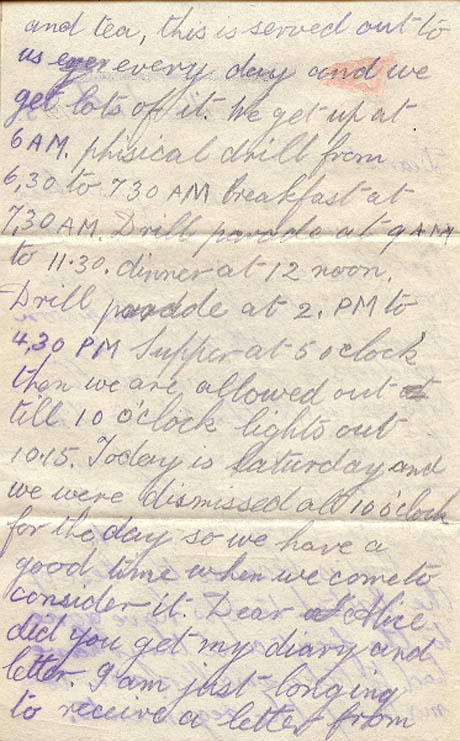 and tea, this is served out to
us every day and we
get lots of it. We get up at
6 AM. phisical drill from
6,30 to 730 AM Breakfast at
7,30 AM. Drill parade at 9 AM
to 11.30. dinner at 12 noon.
Drill parade at 2. PM to
4,30 PM Supper at 5 oclock
then we are allowed out
till 10 o'clock lights out
10.15. Today is Saturday and
we were dismissed at 10 o'clock
for the day so we have a
good time when we come to
consider it. Dear Alice
did you get my diary and
letter. I am just longing
to receive a letter from